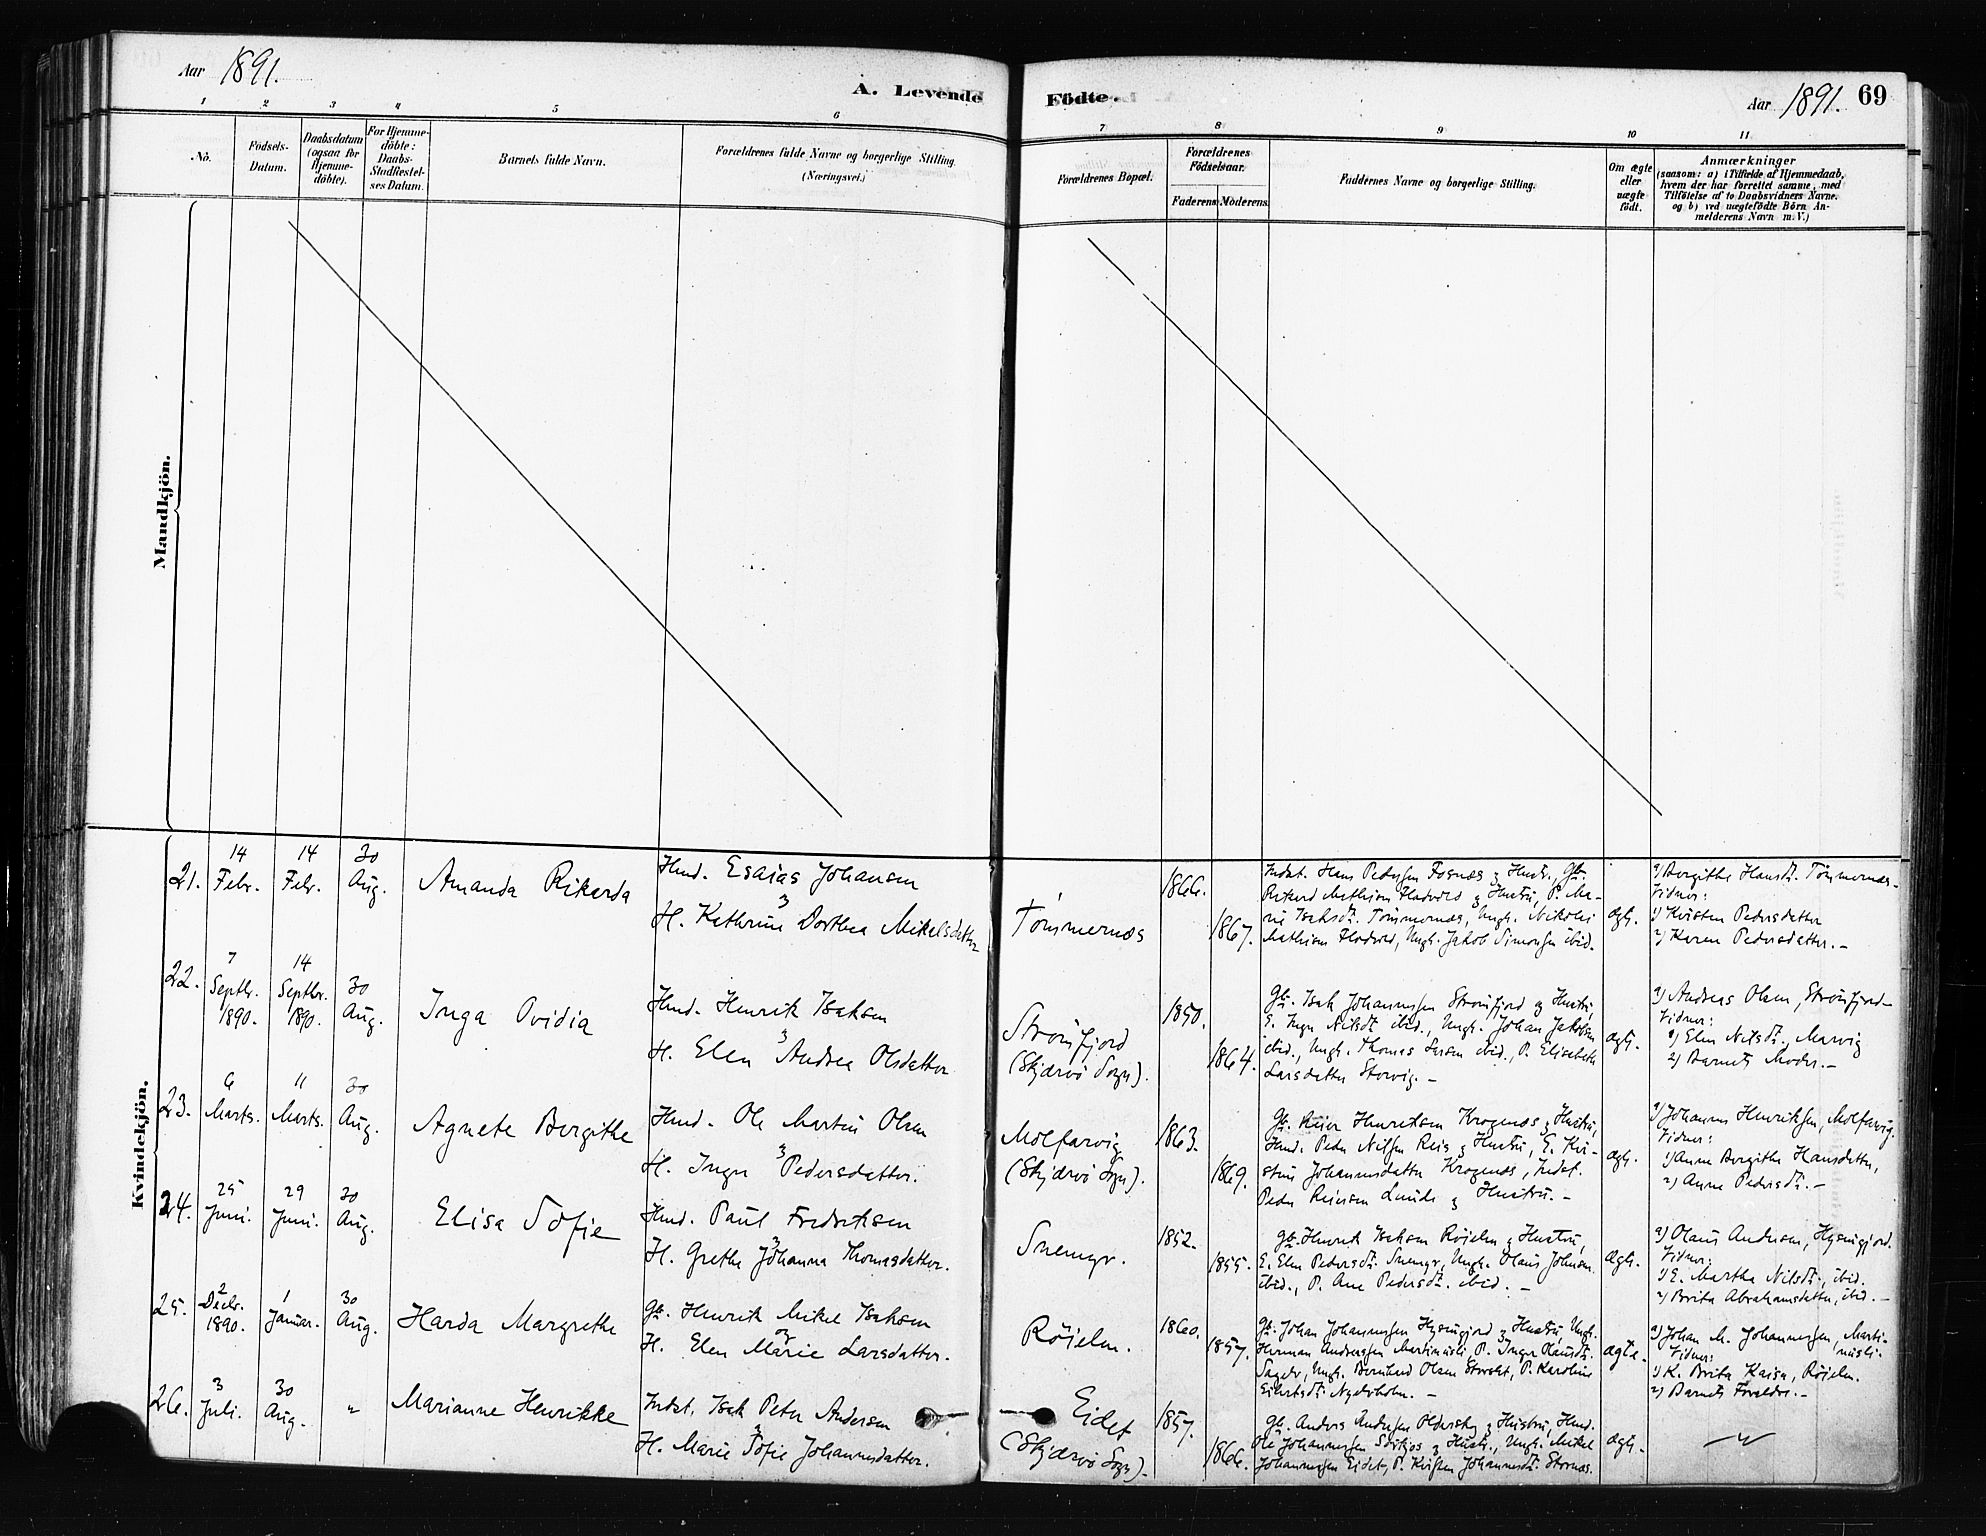 Aar 1891.
A. Levende Födte.
Aar 1891. 69
1 2 3 4 5 6 7 8 9 10 11
No.
Födsels-Datum.
Daabsdatum (ogsaa for Hjemme-döbte).
For Hjemme-döbte: Daabs-Stadfæstel-ses Datum.
Barnets fulde Navn.
Forældrenes fulde Navne og borgerlige Stilling. (Næringsvei.)
Forældrenes Bopæl.
Forældrenes Födselsaar.
Faderens. Moderens.
Faddernes Navne og borgerlige Stilling.
Om ægte eller uægte födt.
Anmærkninger
(saasom: a) i Tilfælde af Hjemmedaab,
hvem der har forrettet samme, med
Tilföielse af to Daabsvidners Navne.
og b) ved uægtefödte Börn An-
melderens Navn m. V.)
Mandkjön.
Kvindekjön.
21. 14 Febr. 14 Febr. 30 Aug. Amanda Rikarda
Hmd. Esaias Johansen
H. Kathrine Dorthea Mikelsdatter
Tömmernæs 1866. 1867.
Indst. Hans Pedersen Fosnæs og Hustr., Gbr.
Rikard Mathisen Fladvold og Hustru, P. Ma-
rie Isaksdtr. Tömmernæs, Ungk. Nikolai
Mathisen Flodvold, Ungk. Jakob Simonsen ibid.
ægt.
a) Bergithe Hansdtr. Tömmernæs.
Vidner:
1) Kristen Pedersdatter
2) Karen Pedersdatter. –
22. 7 Septbr. 1890. 14 Septbr. 1890. 30 Aug. Inga Ovidia
Hmd. Henrik Isaksen
H. Elen Andrea Olsdatter
Strömfjord (Skjærvö Sogn). 1850. 1864.
Gbr. Isak Johannessen Strömfjord og Hustru,
E. Inger Nilsdtr ibid., Ungk. Johan Jakobsen
ibid., Ungk. Thomas Larsen ibid., P. Elisabeth
Larsdatter Storvig. –
ægt.
a) Andreas Olsen, Strömfjord –
Vidner:
1) Elen Nilsdtr., Marvig
2) Barnets Moder. –
23. 6 Marts. 11 Marts. 30 Aug. Agnete Bergithe
Hmd. Ole Martin Olsen
H. Inger Pedersdatter.
Molfarvig (Skjærvö Sogn). 1863. 1869.
Gbr. Reier Henriksen Krogenæs og Hustru,
Hmd. Peder Nilsen Reis og Hustru, E. Kri-
stine Johannesdatter Krogenæs, Indst.
Peder Reiersen Lunde og Hustru. –
ægt.
a) Johannes Henriksen, Molfarvig.
Vidner:
1) Anne Bergithe Hansdatter,
2) Anne Pedersdtr. –
24. 25 Juni. 29 Juni. 30 Aug. Elisa Sofie
Hmd. Paul Fredriksen
H. Grethe Johanna Thomasdatter.
Snemyr. 1852. 1855.
Gbr. Henrik Isaksen Röielen og Hustru,
E. Elen Pedersdtr. Snemyr, Ungk. Olaus Johnsen
ibid., P. Ane Pedersdtr. ibid. –
ægt.
a) Olaus Andersen, Hysingjord.
Vidner:
1) E. Martha Nilsdtr., ibid.
2) Brita Abrahamsdatter, ibid. –
25. 2 Decbr. 1890. 1 Januar. 30 Aug. Harda Margrethe
Gbr. Henrik Mikel Isaksen
H. Elen Marie Larsdatter.
Röielen. 1860. 1857.
Gbr. Johan Johannessen Hysingjord og Hustru, Ungk.
Herman Andersen Martinusli P. Inger Olausdtr.
Sagelv, Ungk. Bernhard Olsen Storslet, P. Karoline
Eilertsdtr. Nyelvholm. –
ægte.
a) Johan M. Johannessen, Marti-
nusli.
Vidner:
1) K. Brita Kaisa, Röielen.
2) Barnets Forældre. –
26. 3 Juli. 30 Aug. " Marianne Henrikke
Indst. Isak Peter Andersen
H. Marie Sofie Johannesdatter.
Eidet (Skjærvö Sogn). 1857. 1866.
Gbr. Anders Andersen Olderskog og Hustru, Hmd.
Ole Johannessen Sörkjos og Hustr., Ungk. Mikel
Johannessen Eidet, P. Kristen Johannesdtr. Stornæs.
ægt.